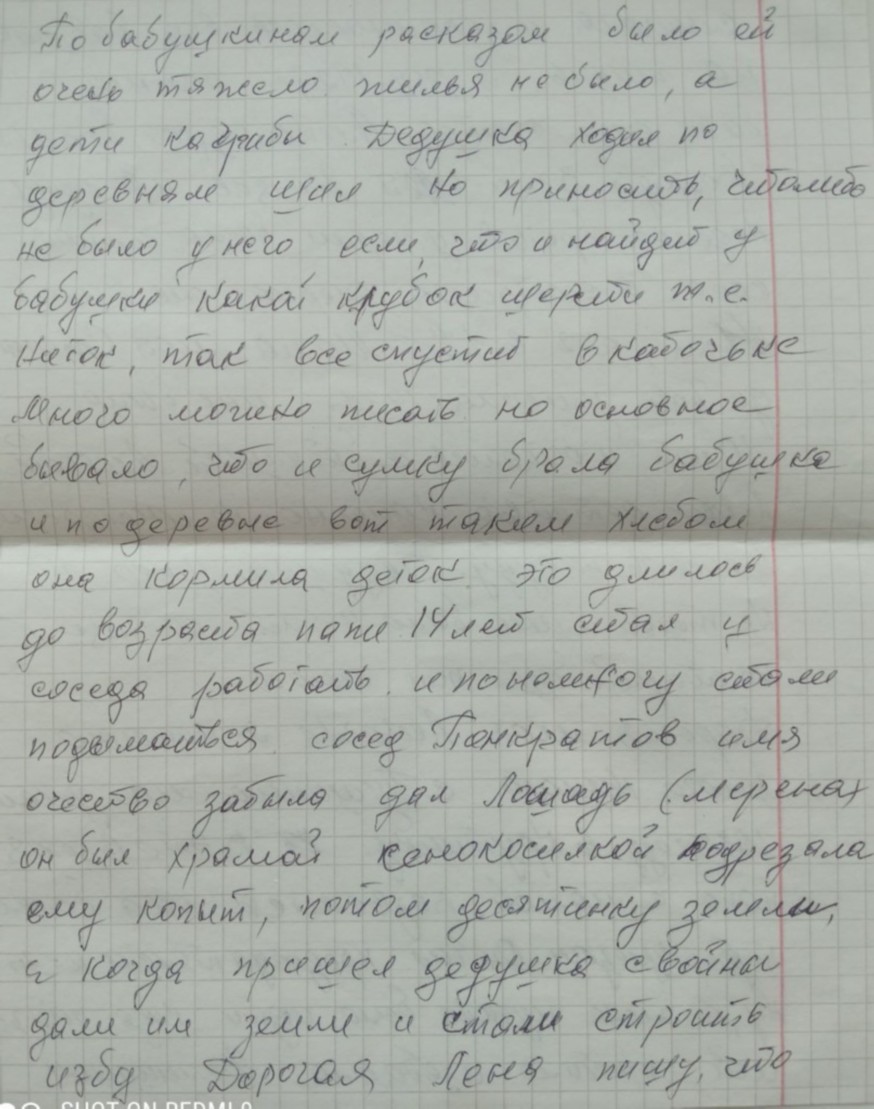 По бабушкинам расказом было ей
очень тяжело жилья не было, а
дети как грибы Дедушка ходил по
деревням шил но приносить, чтолибо
не было у него если, что и найдет у
бабушки какой клубок шерсти т.е.
Ниток, так все спустит в кабачьке
Много можно писать но основное
бывало, что и сумку брала бабушка
и по деревне вот таким хлебом
она кормила деток это длилось
до возраста папи 14 лет стал у
соседа работать и понемногу стали
подыматься сосед Панкратов имя
очество забыла дал Лошадь (мерена)
он был храмой сенокосилкой подрезала
ему копыт, потом десятинку земли,
а когда пришел дедушка с войны
дали им земли и стали строить
избу Дорогая Лена пишу, что
SHOT ON REDMI 9